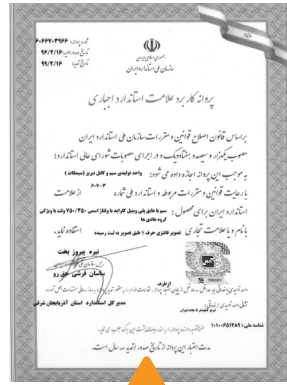 شماره پروانه: ۶۰۶۶۷۰۳۹۶۶
تاریخ صدور اولیه: ۹۶/۲/۱۶
تاریخ تمدید: ۹۹/۲/۱۶
جمهوری اسلامی ایران
سازمان ملی استاندارد ایران
پروانه کاربرد علامت استاندارد اجباری
براساس قانون اصلاح قوانین و مقررات سازمان ملی استاندارد ایران
مصوب یکهزار و سیصد و هفتاد و یک و در اجرای مصوبات شورای عالی استاندارد؛
به موجب این پروانه اجازه داده می شود: واحد تولیدی سیم و کابل تبریز (سیمکات)
با رعایت قوانین و مقررات مربوطه و استاندارد ملی شماره ۶۰۷-۳ از علامت
استاندارد ایران برای محصول: سیم با عایق پلی وینیل کلراید با ولتاژ اسمی ۴۵۰/۷۵۰ ولت با ویژگی
گروه هادی ها
با نام و یا علامت تجاری تصویر فانتزی حرف t طبق تصویر به ثبت رسیده استفاده نماید.
نیره پیروز بخت
ساسان فرشی حق رو
از طرف
مدیر کل استاندارد استان آذربایجان شرقی
شناسه ملی: ۱۰۱۰۰۶۵۱۴۸۹
مدت اعتبار این پروانه از تاریخ صدور/تمدید سه سال است.